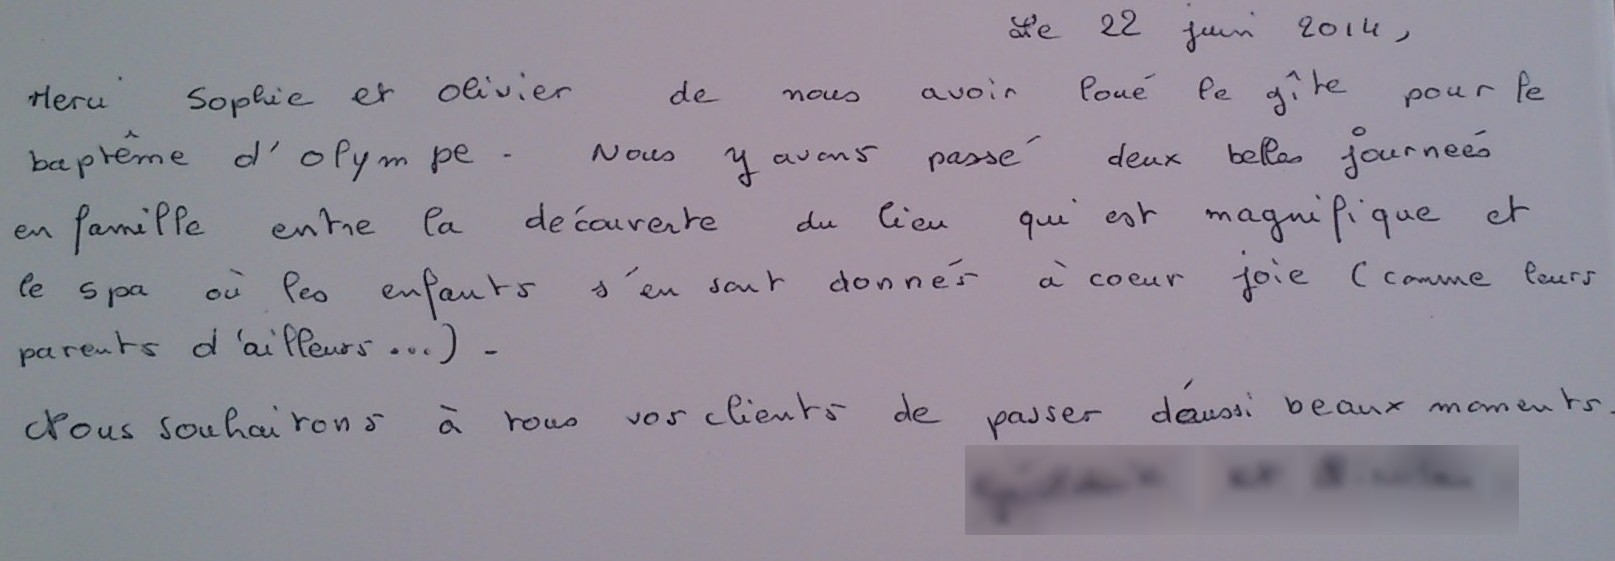 Le 22 juin 2014,
Merci Sophie et Olivier de nous avoir loué le gîte pour le
baptême d'Olympe - Nous y avons passé deux belles journées
en famille entre la découverte du lieu qui est magnifique et
le spa où les enfants s'en sont donnés à coeur joie (comme leurs
parents d'ailleurs...) -
Nous souhaitons à tous vos clients de passer d'aussi beaux moments.